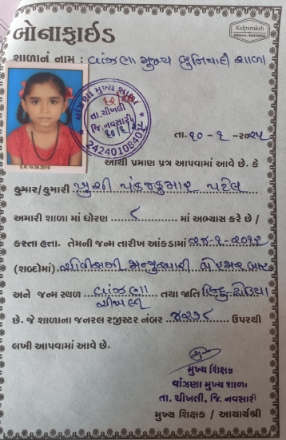 બોનાફાઈડ
શાળાનું નામ : વાંઝણા મુખ્ય બુનિયાદી શાળા
વાંઝણા મુખ્ય શાળા
તા. ચીખલી
જિ. નવસારી
તા. ૧૦ - ૧ - ૨૦૨૫
આથી પ્રમાણ પત્ર આપવામાં આવે છે. કે
કુમાર/કુમારી ખુશી પંકજકુમાર પટેલ
અમારી શાળા માં ધોરણ ૮ માં અભ્યાસ કરે છે /
કરતા હતા. તેમની જન્મ તારીખ આંકડામાં ૨૪-૧-૨૦૧૨
(શબ્દોમાં) ચોવીસમી જાન્યુઆરી બે હજાર બાર
અને જન્મ સ્થળ વાંઝણા તથા જાતિ હિન્દુ ધોડિયા
ચીખલી
છે. જે શાળાના જનરલ રજીસ્ટર નંબર ઉપરથી
લખી આપવામાં આવે છે.
મુખ્ય શિક્ષક
વાંઝણા મુખ્ય શાળા
તા. ચીખલી, જિ. નવસારી
મુખ્ય શિક્ષક / આચાર્યશ્રી